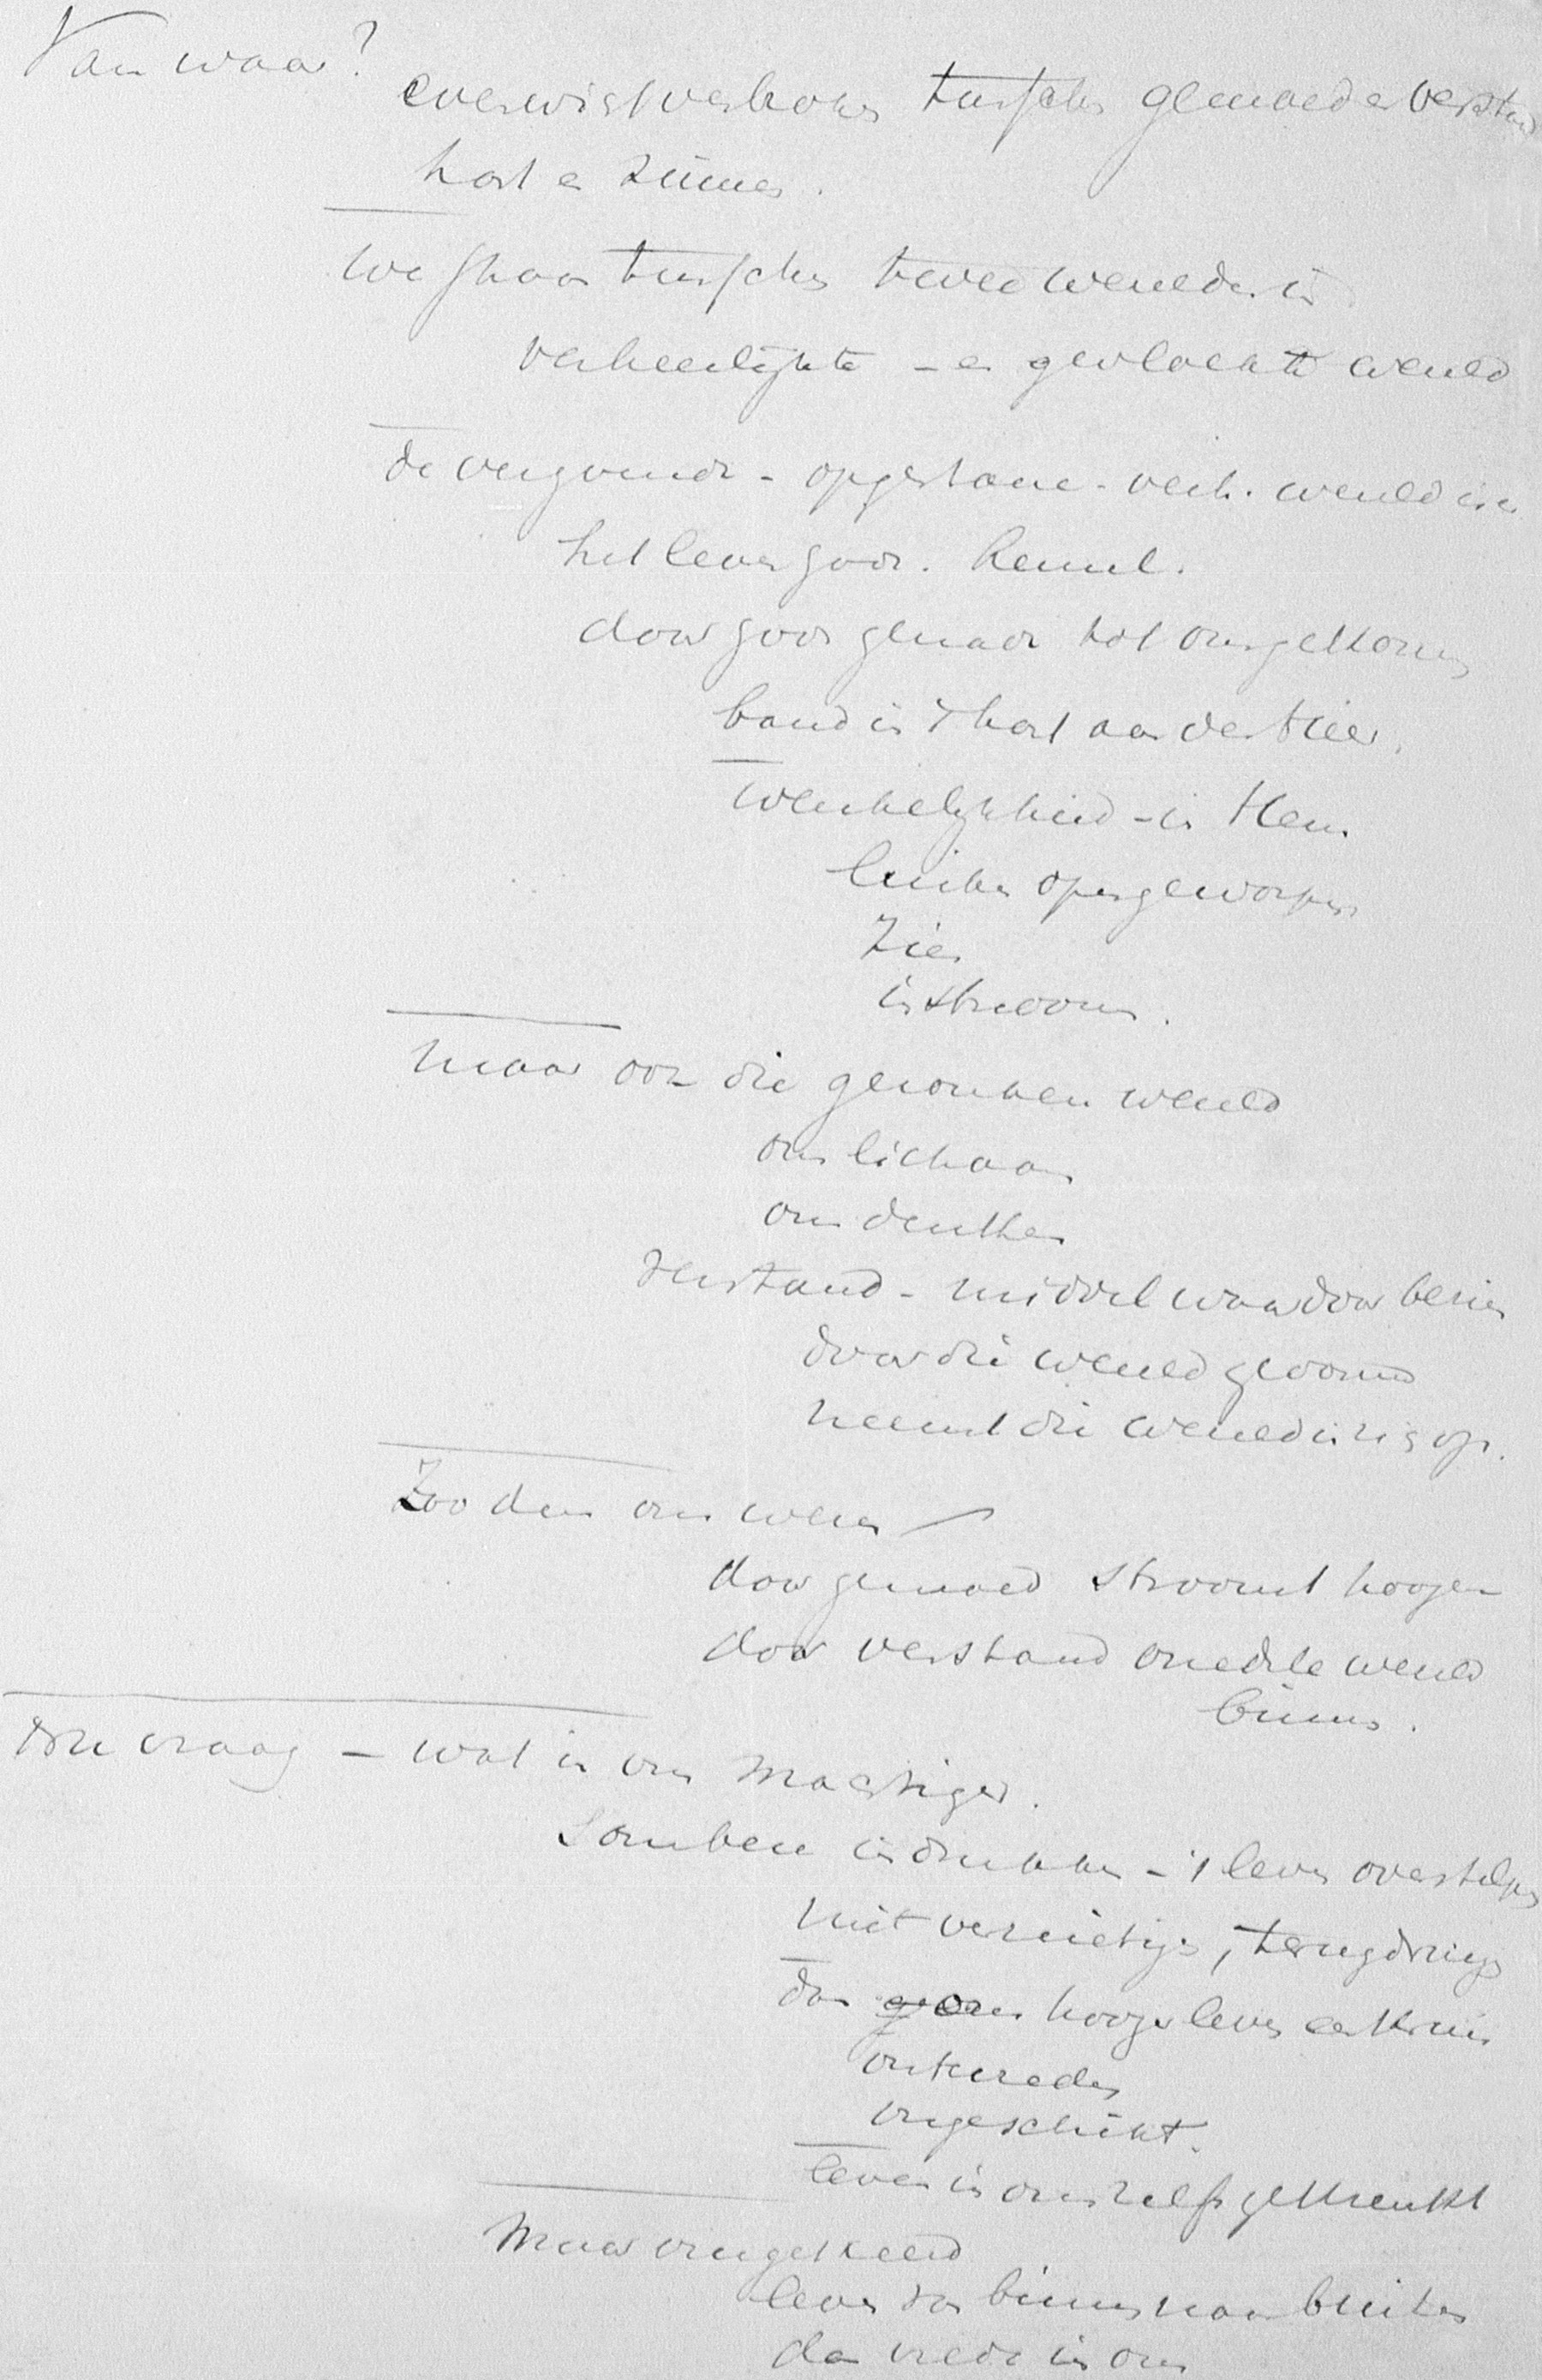 Van waar?
evenwicht verbroken tusschen gemoed en verstand
hart en zinnen.
we staan tusschen twee werelden in
verheerlijkte - en gevloekte wereld
de vergeende - opgestane - verh. wereld is er
het leven Gods. hemel.
door Gods genade tot ons gekomen
band in 't hart aan den Heer.
werkelijkheid - in Hem.
luiken opengeworpen
zien
instroomen.
maar ook die gezonken wereld
ons lichaam
ons denken
verstand - middel waardoor bezien
door die wereld gevormd
neemt die wereld in zich op.
Zoo dan ons wezen
door gemoed stroomt hoogere
door verstand onedele wereld
binnen.
Die vraag - wat in ons machtiger.
Sombere indrukken - 't leven overstelpen
niet vernietigen, terugdringen
dan hooger leven een kruis
ontevreden
ongeschikt.
leven in ons zelf gekrenkt
Maar omgekeerd
leven van binnen naar buiten
dan vrede in ons